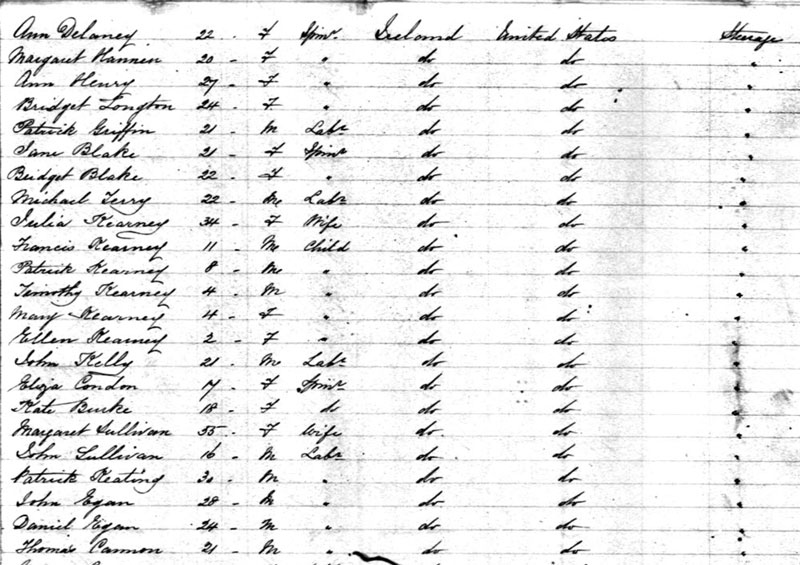 Ann Delaney 22 - F Spinr. Ireland United States Steerage
Margaret Hannen 20 - F " do do "
Ann Henry 27 - F " do do "
Bridget Longton 24 - F " do do "
Patrick Griffin 21 - M Labr do do "
Jane Blake 21 - F Spinr do do "
Bridget Blake 22 - F " do do "
Michael Terry 22 - M Labr do do "
Julia Kearney 34 - F Wife do do "
Francis Kearney 11 - M Child do do "
Patrick Kearney 8 - M " do do "
Timothy Kearney 4 - M " do do "
Mary Kearney 4 - F " do do "
Ellen Kearney 2 - F " do do "
John Kelly 21 - M Labr do do "
Eliza Condon 17 - F Spinr do do "
Kate Burke 18 - F do do do "
Margaret Sullivan 55 - F Wife do do "
John Sullivan 16 - M Labr do do "
Patrick Keating 30 - M " do do "
John Egan 28 - M " do do "
Daniel Egan 24 - M " do do "
Thomas Cannon 21 - M " do do "